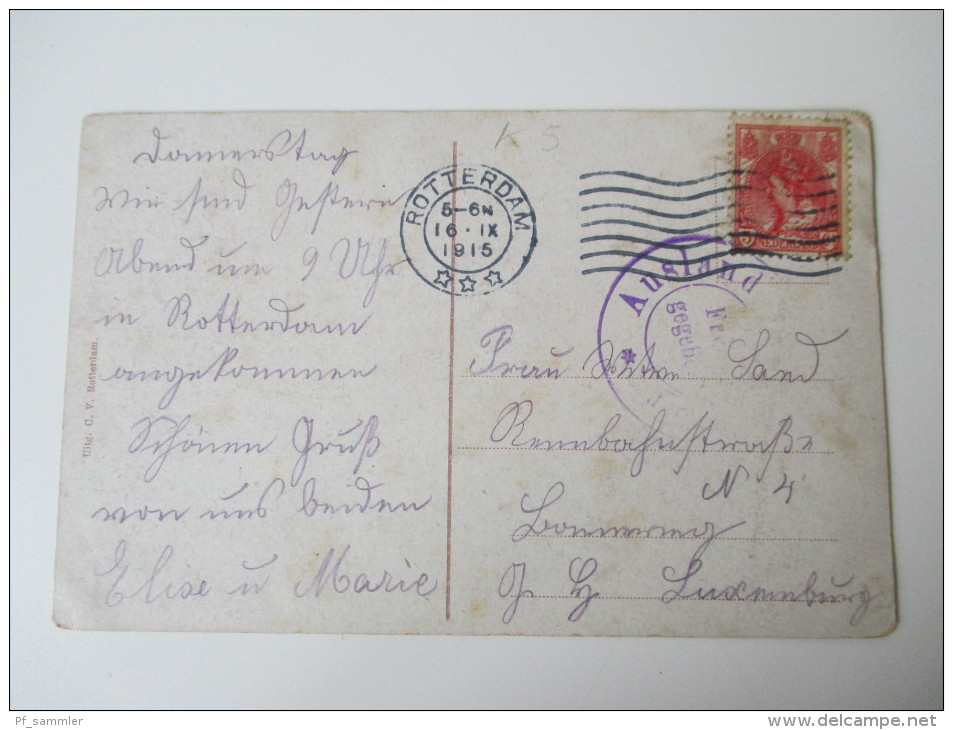 K 5
Donnerstag
Wir sind Gestern
Abend um 9 Uhr
in Rotterdam
angekommen
Schönen Gruß
von uns beiden
Elise u Marie
Uitg. C. V. Rotterdam.
ROTTERDAM
5-6N
16·IX
1915
5 NEDERLAND 5
Ausland
gegebe
Frau Witwe Sand
Rennbahnstraße
N 4
Bonnerweg
G. H. Luxemburg
Pf_sammler
www.delcampe.net